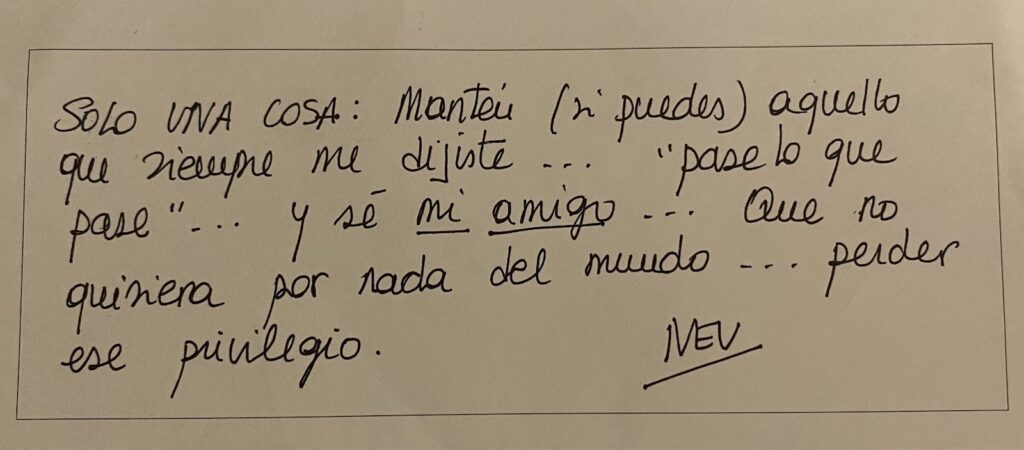 SOLO UNA COSA: Mantén (si puedes) aquello
que siempre me dijiste ... "pase lo que
pase"... y sé mi amigo ... Que no
quisiera por nada del mundo ... perder
ese privilegio.
NEU